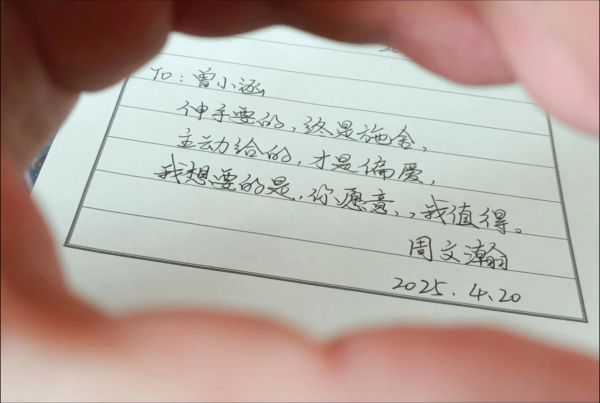 TO：曾小涵
伸手要的，终是施舍，
主动给的，才是偏爱，
我想要的是，你愿意，，我值得。
周文瀚
2025.4.20